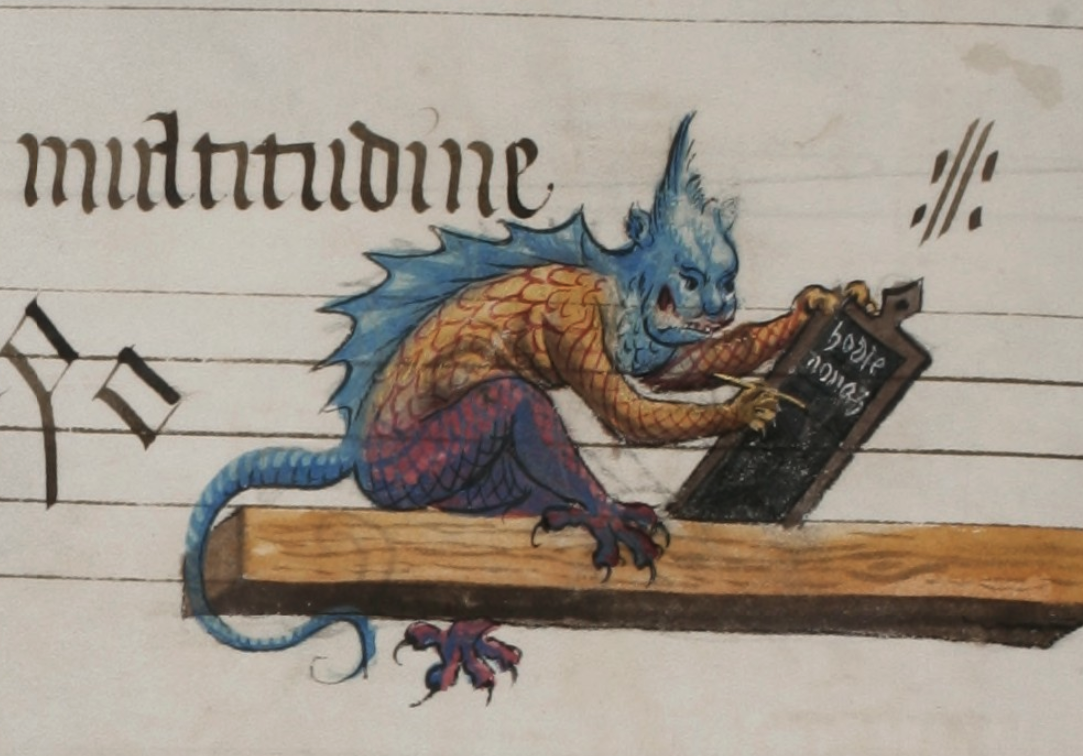 multitudine
hodie
nonas